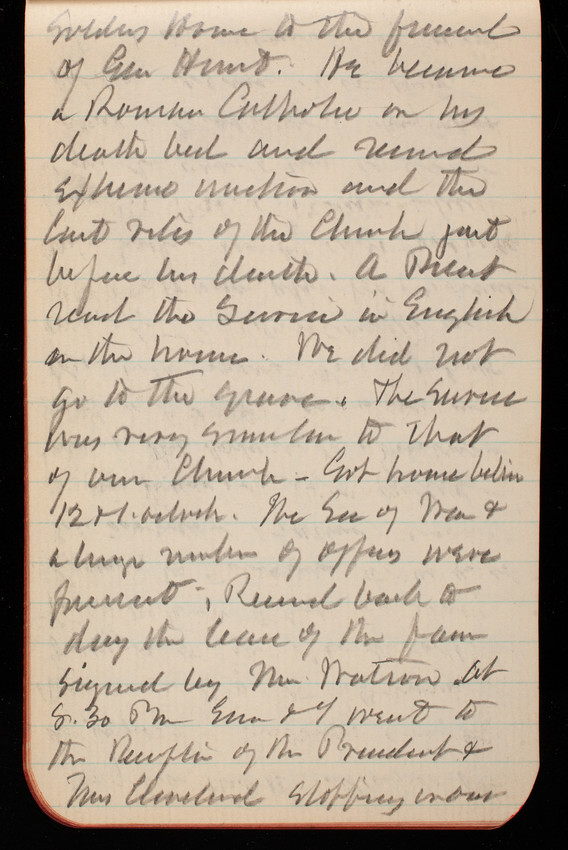 Soldiers Home to the funeral
of Gen Hunt. He became
a Roman Catholic on his
death bed and received
Extreme unction and the
last rites of the Church just
before his death. A Priest
read the Service in English
in the house. We did not
go to the grave. The Service
was very similar to that
of our Church - Got home between
12 & 1 oclock. The Sec of War &
a large number of officers were
present. Received back to
day the lease of the farm
signed by Mr Watson. At
8.30 PM Eva & I went to
the Reception of the President &
Mrs Cleveland stopping